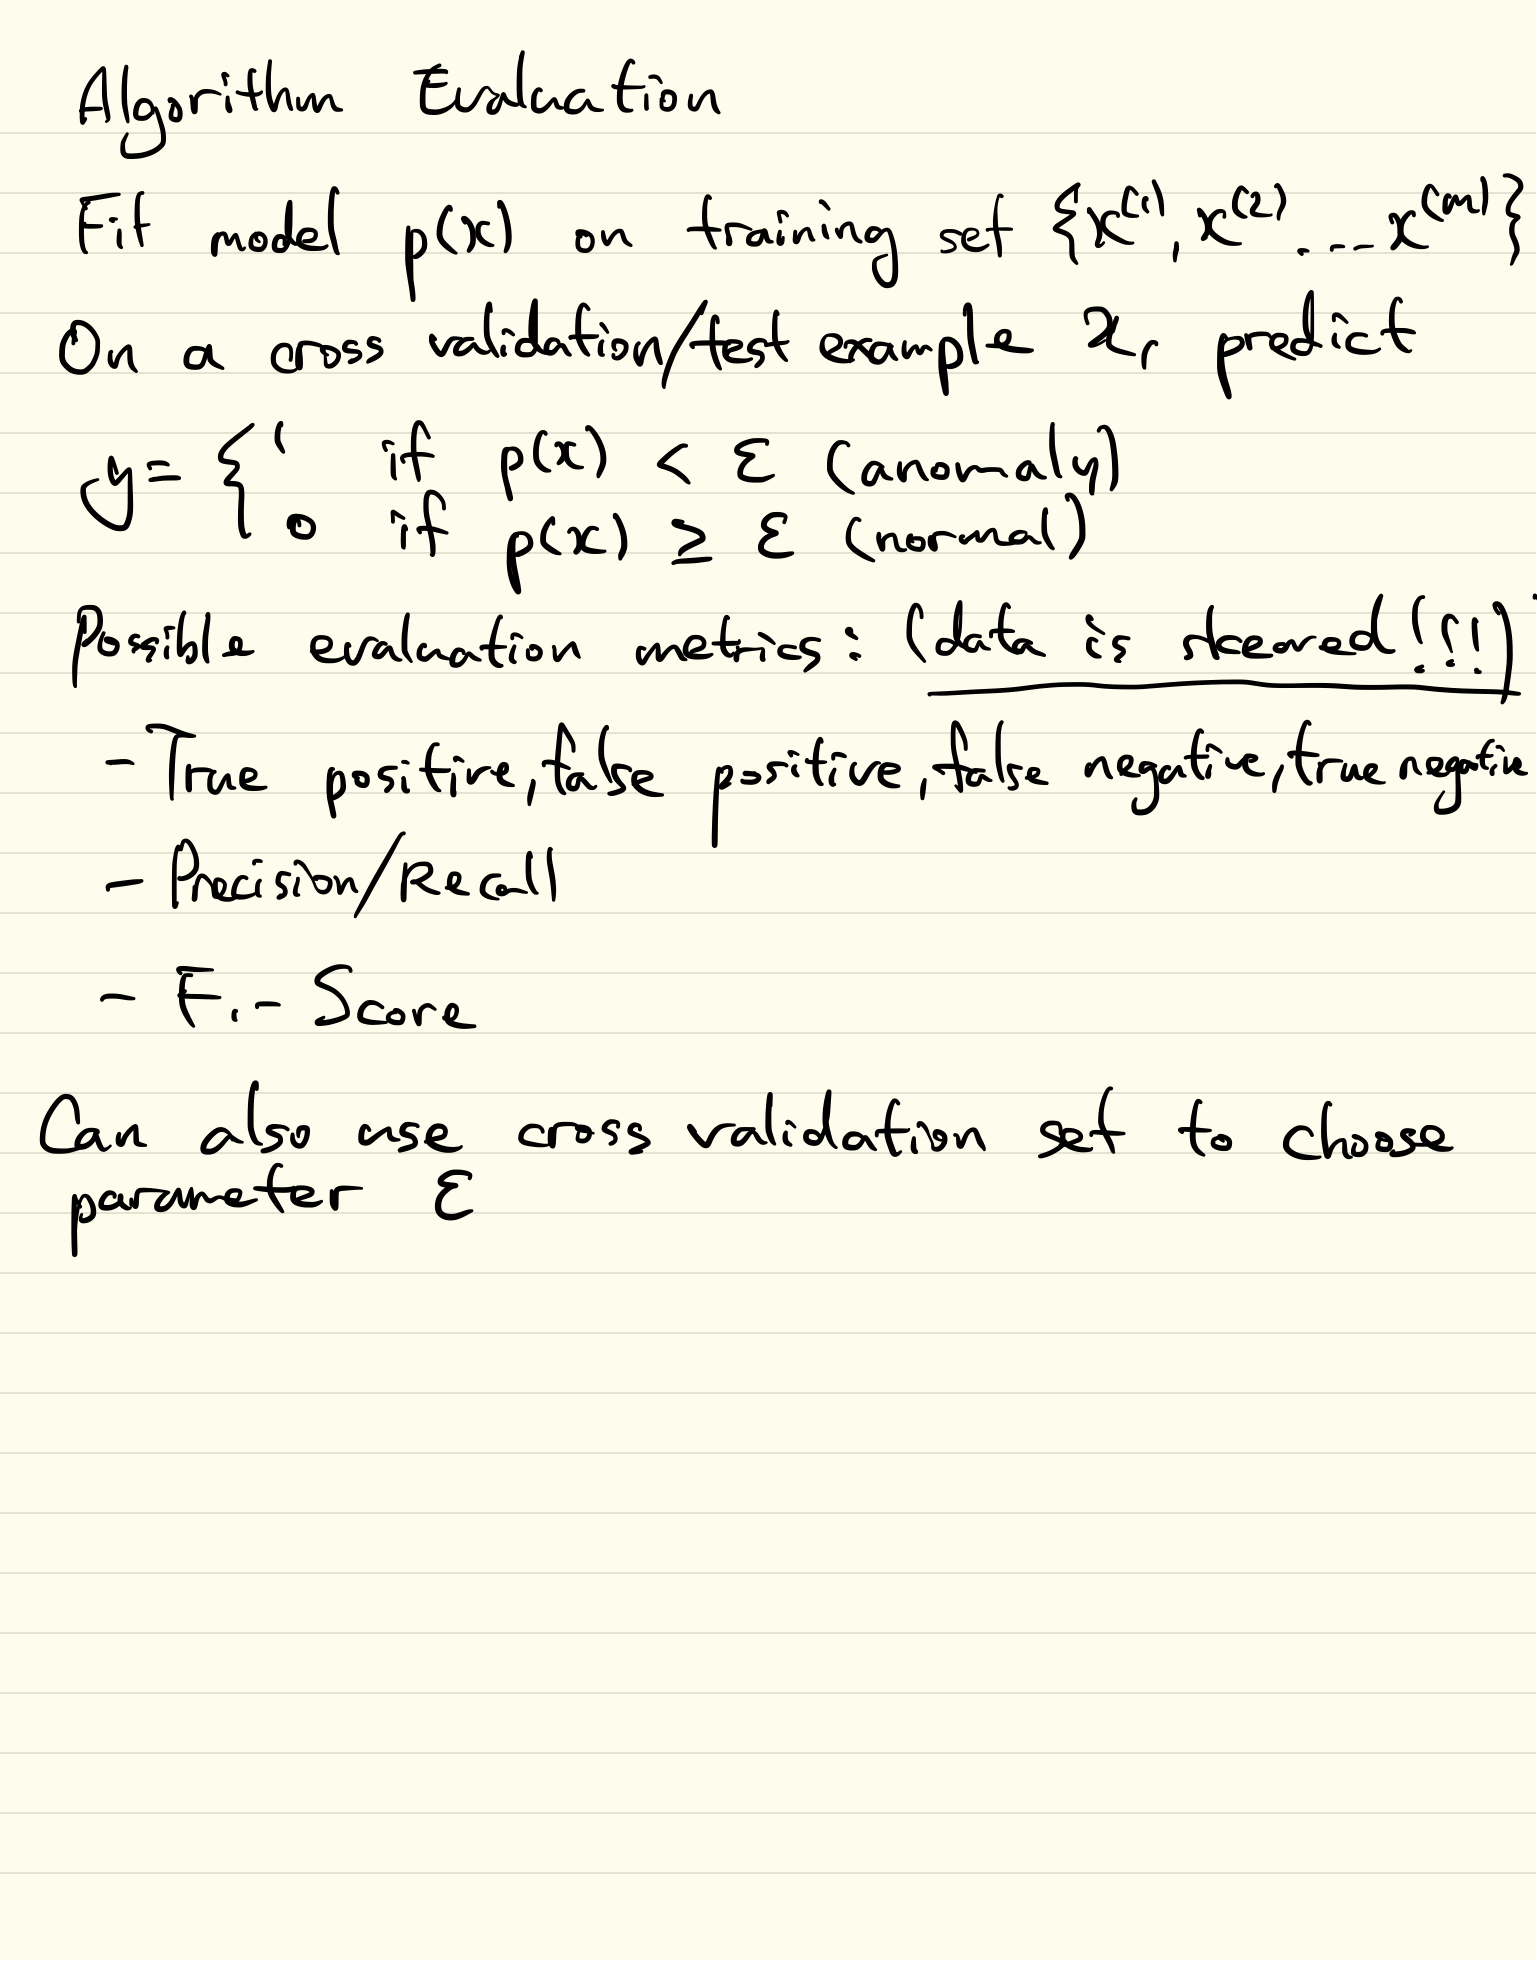 Algorithm Evaluation
Fit model p(x) on training set {x⁽¹⁾, x⁽²⁾ ... x⁽ᵐ⁾}
On a cross validation/test example x, predict
y = { 1 if p(x) < ε (anomaly)
0 if p(x) ≥ ε (normal)
Possible evaluation metrics: (data is skewed!!!)
- True positive, false positive, false negative, true negative
- Precision/Recall
- F₁ - Score
Can also use cross validation set to choose
parameter ε